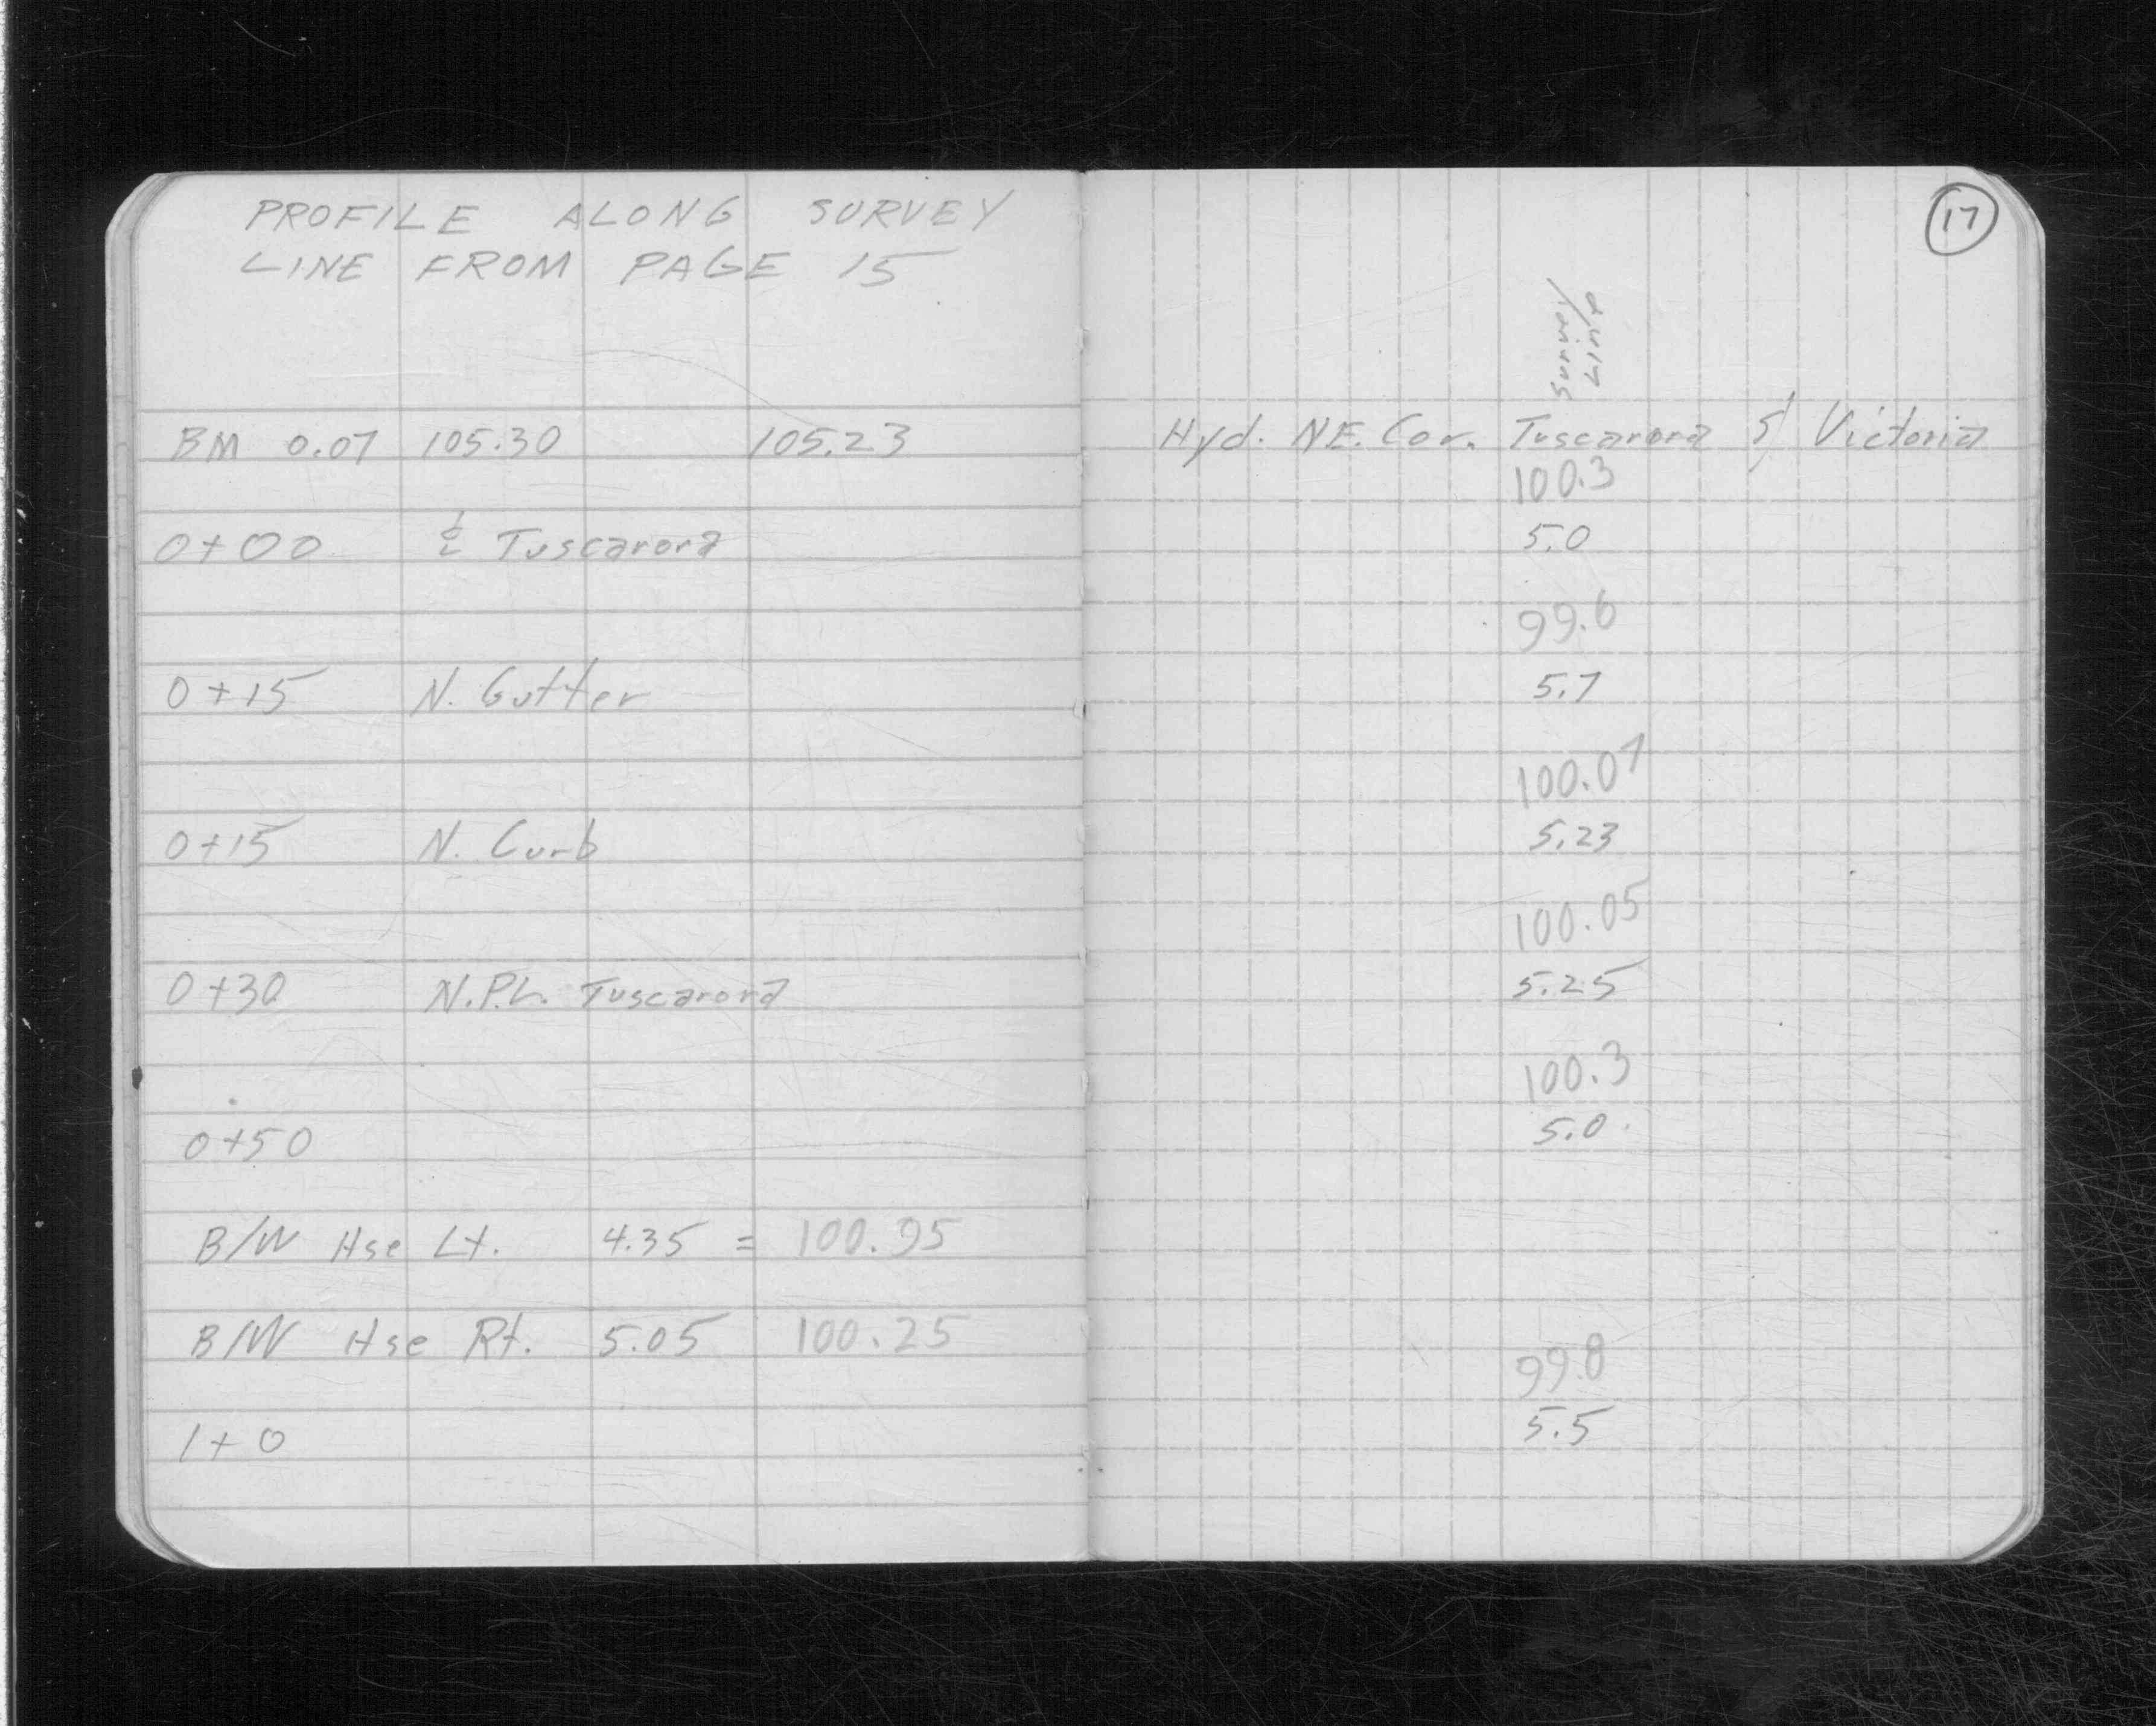 PROFILE ALONG SURVEY
LINE FROM PAGE 15
BM 0.07 105.30 105.23
0+00 ℄ Tuscarora
0+15 N. Gutter
0+15 N. Curb
0+30 N.P.L. Tuscarora
0+50
B/W Hse Lt. 4.35 = 100.95
B/W Hse Rt. 5.05 100.25
1+0
17
Survey
Line
Hyd. N.E. Cor. Tuscarora & Victoria
100.3
5.0
99.6
5.7
100.07
5.23
100.05
5.25
100.3
5.0
99.8
5.5